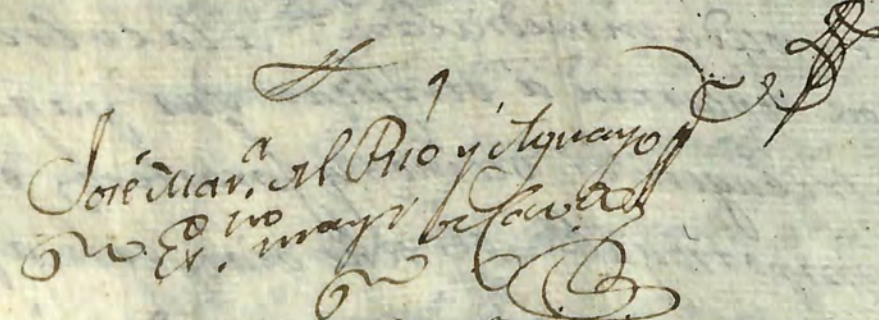 José Mar.ª del Rio y Aguayo
Es.no mayr de Cav.do